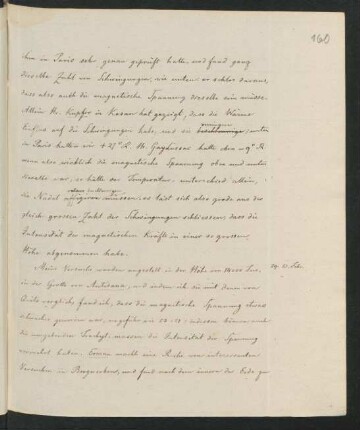 160
ihn in Paris sehr genau geprüft hatte und fand ganz
dieselbe Zahl von Schwingungen, wie unten. er schloss daraus,
dass also auch die magnetische Spannung dieselbe sein müsse.
Allein Hr. Kupfer in Kasan hat gezeigt, dass die Wärme
Einfluss auf die Schwingungen habe, und sie
in Paris hatten wir + 27° R. Hr. Gaylussac hatte den – 9° R
wenn also wirklich die magnetische Spannung oben und unten
dieselbe war, so hätte der Temperatur unterschied allein,
die Nadel müssen: es lässt sich also grade aus der
gleich grossen Zahl der Schwingungen schliessen, dass die
Intensität der magnetischen Kräfte in einer so grossen
Höhe abgenommen habe.
Meine Versuche wurden angestellt in der Höhe von 14000 Fuss,
in der Grotte von Antisana, und indem ich sie mit denen von
Quito verglich fand ich, dass die magnetische Spannung etwas
schwächer gewesen war, ungefähr indessen können auch
die umgebenden Trachyt-massen die Intensität der Spannung
verändert haben. machte eine Reihe von interessanten
Versuchen in Bergwerken, und fand auch dem innern der Erde zu